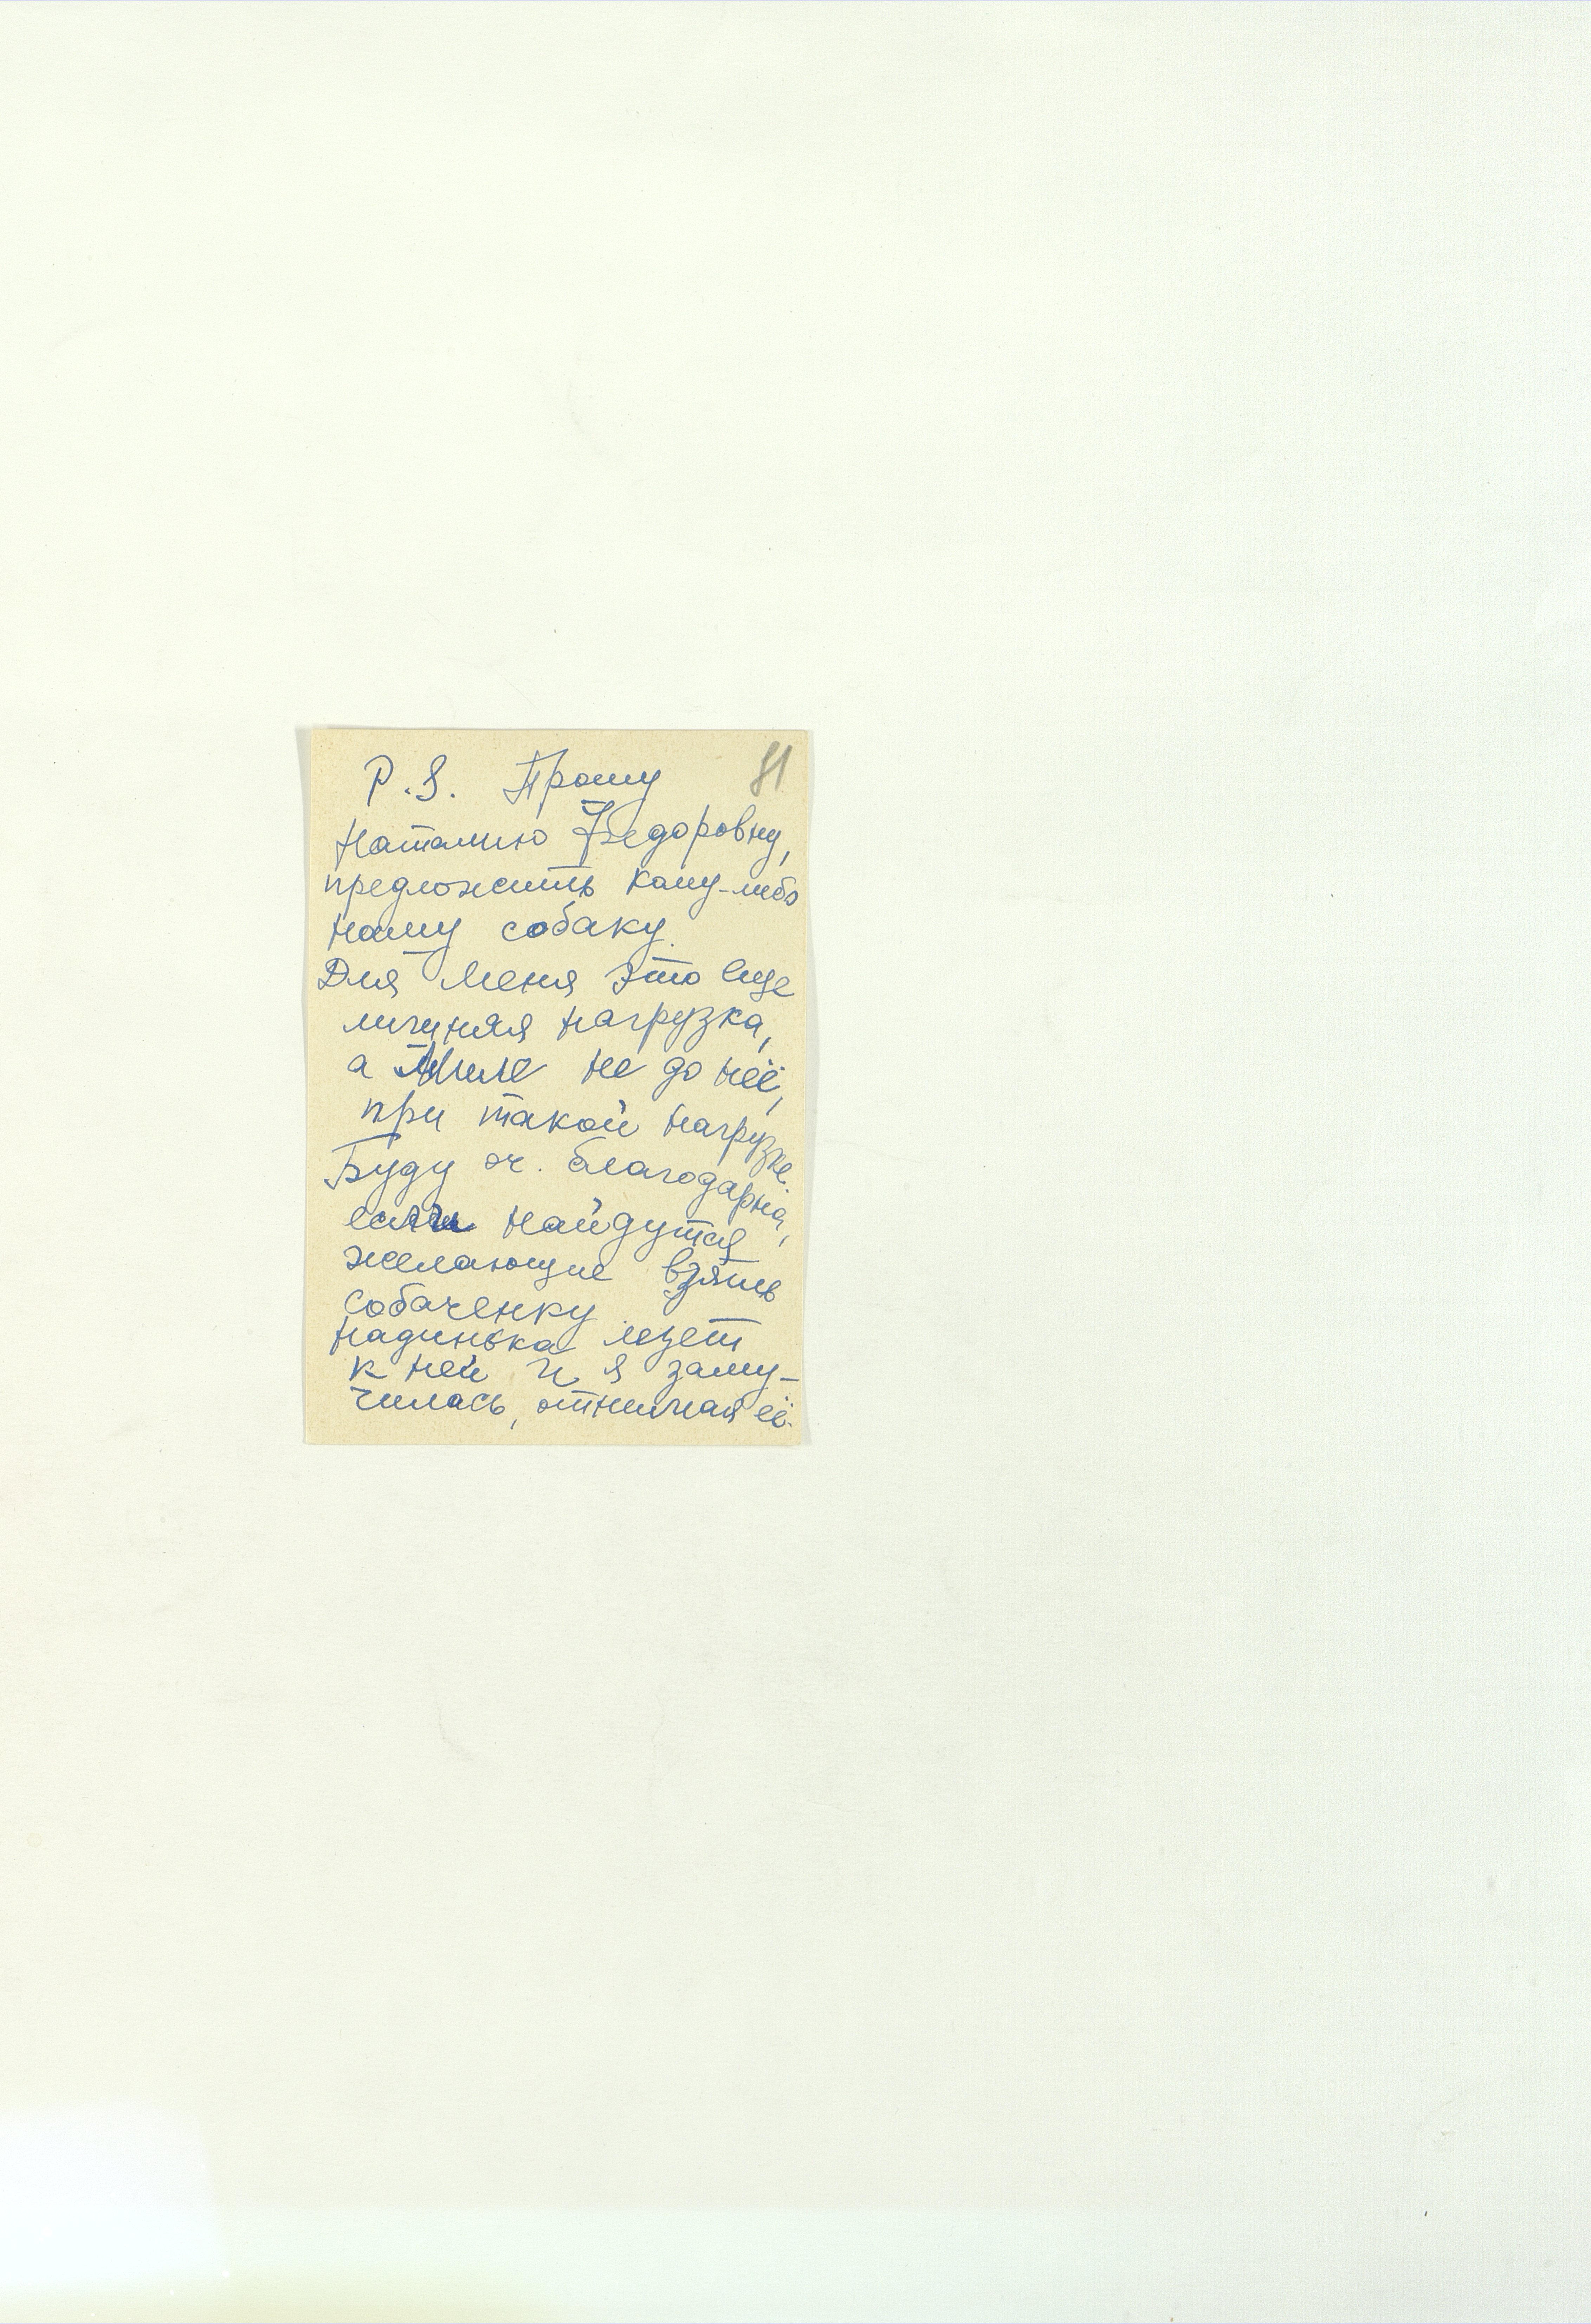 81
P.S. Прошу
Наталию Федоровну,
предложить кому-либо
нашу собаку.
Для меня это еще
лишняя нагрузка,
а Миле не до неё,
при такой нагрузке.
Буду оч. благодарна,
если найдутся
желающие взять
собаченку.
Надинька лезет
к ней и я заму-
чилась, отнимая её.